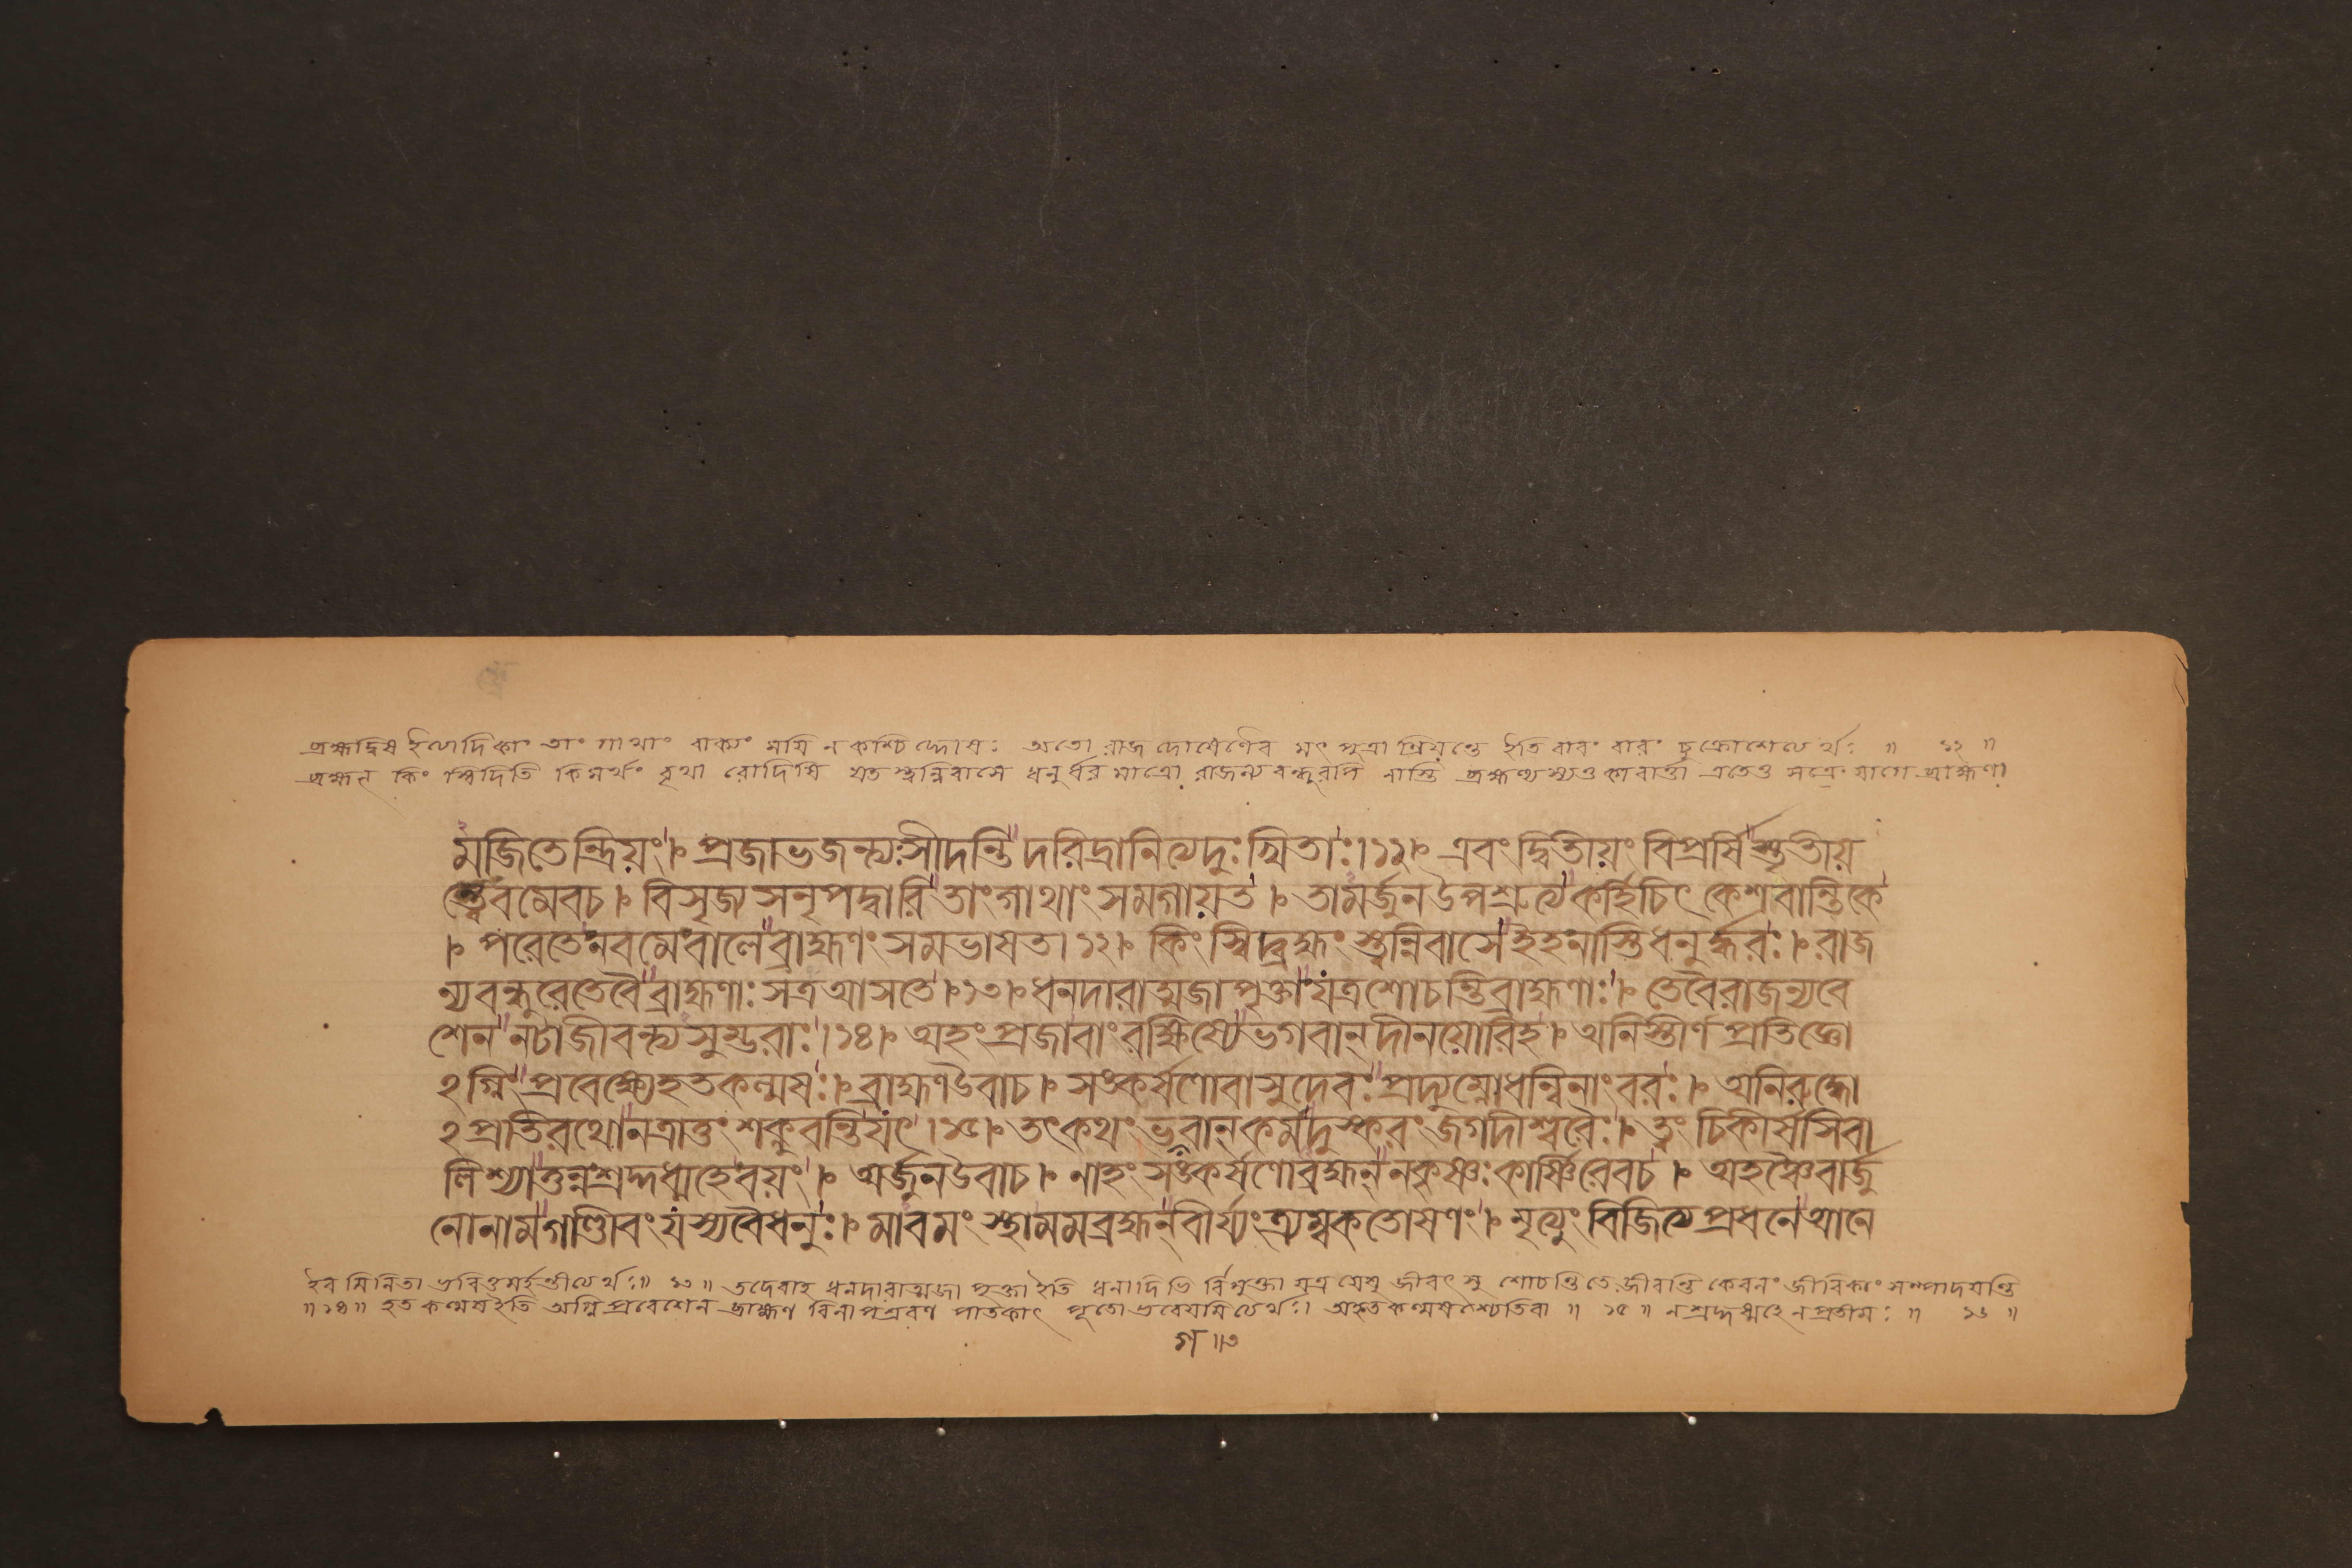 ব্রহ্মদ্বিষ ইত্যাদিকাং তাং গাথাং বাক্যং ময়ি ন কশ্চিদ্দোষঃ অতো রাজ দোষেণৈব মৎ পুত্রা ম্রিয়ন্তে ইতি বারং বারং চুক্রোশেত্যর্থঃ ॥ ১২ ॥
ব্রহ্মন্ কিং স্বিদিতি কিমর্থং বৃথা রোদিষি যত স্ত্বন্নিবাসে ধনুর্ধর মাত্রো রাজন্য বন্ধুরপি নাস্তি ব্রহ্মণ্যস্যও কাবার্ত্তা এতেও সত্রে যাগে ব্রাহ্মণা
মজিতেন্দ্রিয়ং। প্রজাভজন্ত্যঃসীদন্তি দরিদ্রানিত্যদুঃখিতাঃ।১১। এবংদ্বিতীয়ং বিপ্রর্ষিস্তৃতীয়
ন্ত্বেবমেবচ। বিসৃজ্য সনৃপদ্বারি তাংগাথাং সমগায়ত। তামর্জুনউপশ্রুত্য কর্হিচিৎ কেশবান্তিকে
। পরেতেনবমেবালে ব্রাহ্মণং সমভাষত।১২। কিং স্বিদ্ব্রহ্মং স্ত্বন্নিবাসে ইহনাস্তিধনুর্দ্ধরঃ। রাজ
ন্যবন্ধুরেতেবৈ ব্রাহ্মণাঃ সত্রআসতে।১৩। ধনদারাত্মজাপৃক্তা যত্রশোচন্তিব্রাহ্মণাঃ। তেবৈরাজন্যবে
শেন নটাজীবন্ত্যসুম্ভরাঃ।১৪। অহং প্রজাবাং রক্ষিষ্যেভগবান্দীনয়োরিহ। অনিস্তীর্ণ প্রতিজ্ঞো
ঽগ্নিং প্রবেক্ষ্যেহতকল্মষঃ। ব্রাহ্মণউবাচ। সঙ্কর্ষণোবাসুদেবঃ প্রদ্যুম্নোধন্বিনাং বরঃ। অনিরুদ্ধো
ঽপ্রতিরথোনত্রাতুং শক্নুবন্তিযৎ।১৫। তৎকথং ভবান্কর্মদুস্করং জগদীশ্বরৈঃ। ত্বং চিকীর্ষসিবা
লিশ্যাত্তন্নশ্রদ্দধ্মহেবয়ং। অর্জুনউবাচ। নাহং সঙ্কর্ষণোব্রহ্মন্নকৃষ্ণঃকার্ষ্ণিরেবচ। অহঞ্চৈবার্জু
নোনামগাণ্ডীবং যস্যবৈধনুঃ। মাবমং স্থামমব্রহ্মন্বীর্য্যংত্র্যম্বকতোষণং। মৃত্যুং বিজিত্য প্রধনেআনে
ইব মিলিতা ভবিতুমর্হন্তীত্যর্থঃ॥ ১৩ ॥ তদেবাহ ধনদারাত্মজা পৃক্তা ইতি ধনাদিভি র্বিযুক্তা যত্র যেষু জীবৎসু শোচন্তি তে জীবন্তি কেবলং জীবিকাং সম্পাদয়ন্তি
॥ ১৪ ॥ হত কল্মষ ইতি অগ্নি প্রবেশেন ব্রাহ্মণ পাতকাৎ পূতো ভবেয়মিত্যর্থঃ। অহত কল্মষশ্চেতিবা ॥ ১৫ ॥ ন শ্রদ্দধ্মহে ন প্রতীমঃ ॥ ১৬ ॥